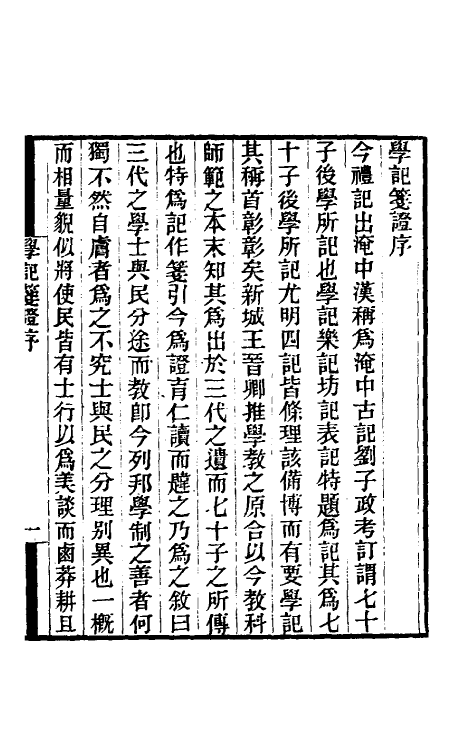 學記箋證序
今禮記出淹中漢稱爲淹中古記劉子政考訂謂七十
子後學所記也學記樂記坊記表記特題爲記其爲七
十子後學所記尤明四記皆條理該備博而有要學記
其稱首彰彰矣新城王晉卿推學教之原合以今教科
師範之本末知其爲出於三代之遺而七十子之所傳
也特爲記作箋引今爲證育仁讀而韙之乃爲之敘曰
三代之學士與民分途而教卽今列邦學制之善者何
獨不然自膚者爲之不究士與民之分理別異也一槪
而相量貌似將使民皆有士行以爲美談而鹵莽耕且
學記箋證序
一